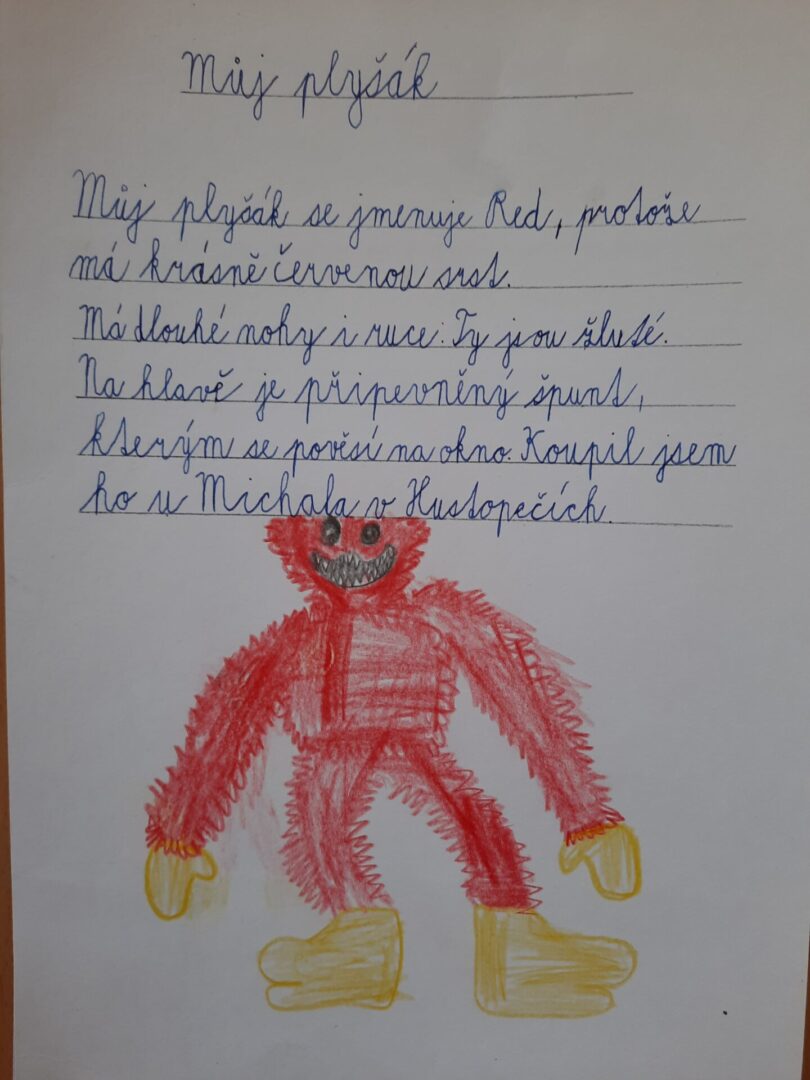 Můj plyšák
Můj plyšák se jmenuje Red, protože
má krásně červenou srst.
Má dlouhé nohy i ruce. Ty jsou žluté.
Na hlavě je připevněný špunt,
kterým se pověsí na okno. Koupil jsem
ho u Michala v Hustopečích.